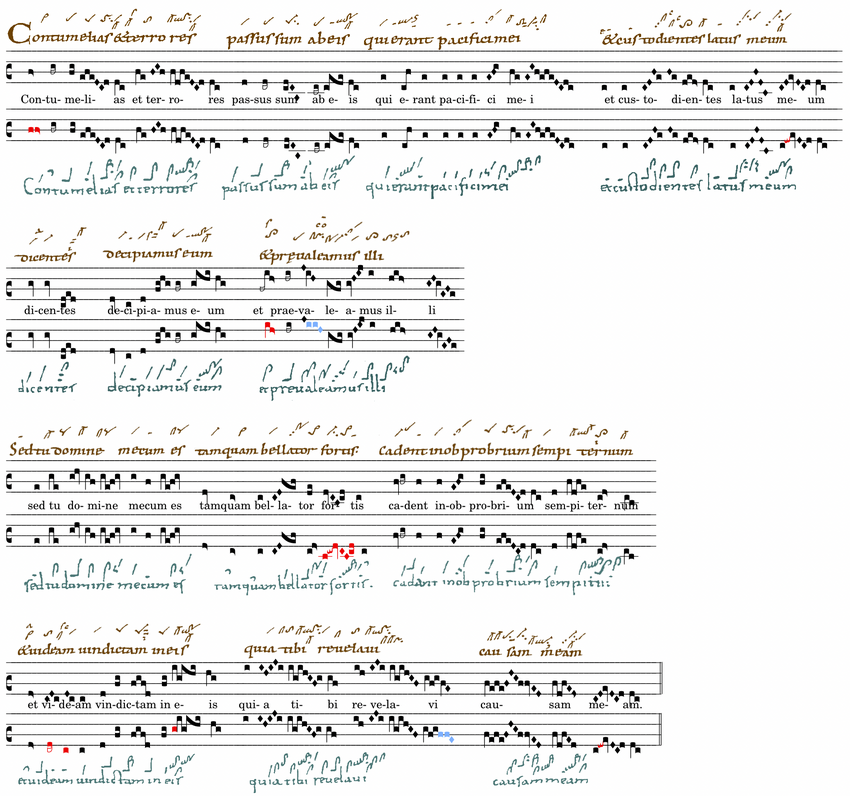 Contumelias & terrores passus sum ab eis qui erant pacifici mei & custodientes latus meum
Con-tu-me-li- as et ter-ro- res pas-sus sum ab e- is qui e-rant pa-ci-fi-ci me-i et cus-to-di-en-tes la-tus me- um
Contumelias et terrores passus sum ab eis qui erant pacifici mei et custodientes latus meum
dicentes decipiamus eum & prevaleamus illi
di-cen-tes de-ci-pi-a-mus e- um et prae-va- le- a-mus il- li
dicentes decipiamus eum et prevaleamus illi
Sed tu domine mecum es tamquam bellator fortis cadent in obprobrium sempiternum
sed tu do-mi-ne mecum es tamquam bel-la-tor for- tis ca-dent in-ob-pro-bri- um sem-pi-ter-num
sed tu domine mecum es tamquam bellator fortis. cadant in obprobrium
& videam vindictam in eis quia tibi revelavi causam meam
et vi-de-am vin-dic-tam in e- is qui-a ti- bi re-ve-la- vi cau- sam me- am.
et videam vindictam in eis quia tibi revelavi causam meam